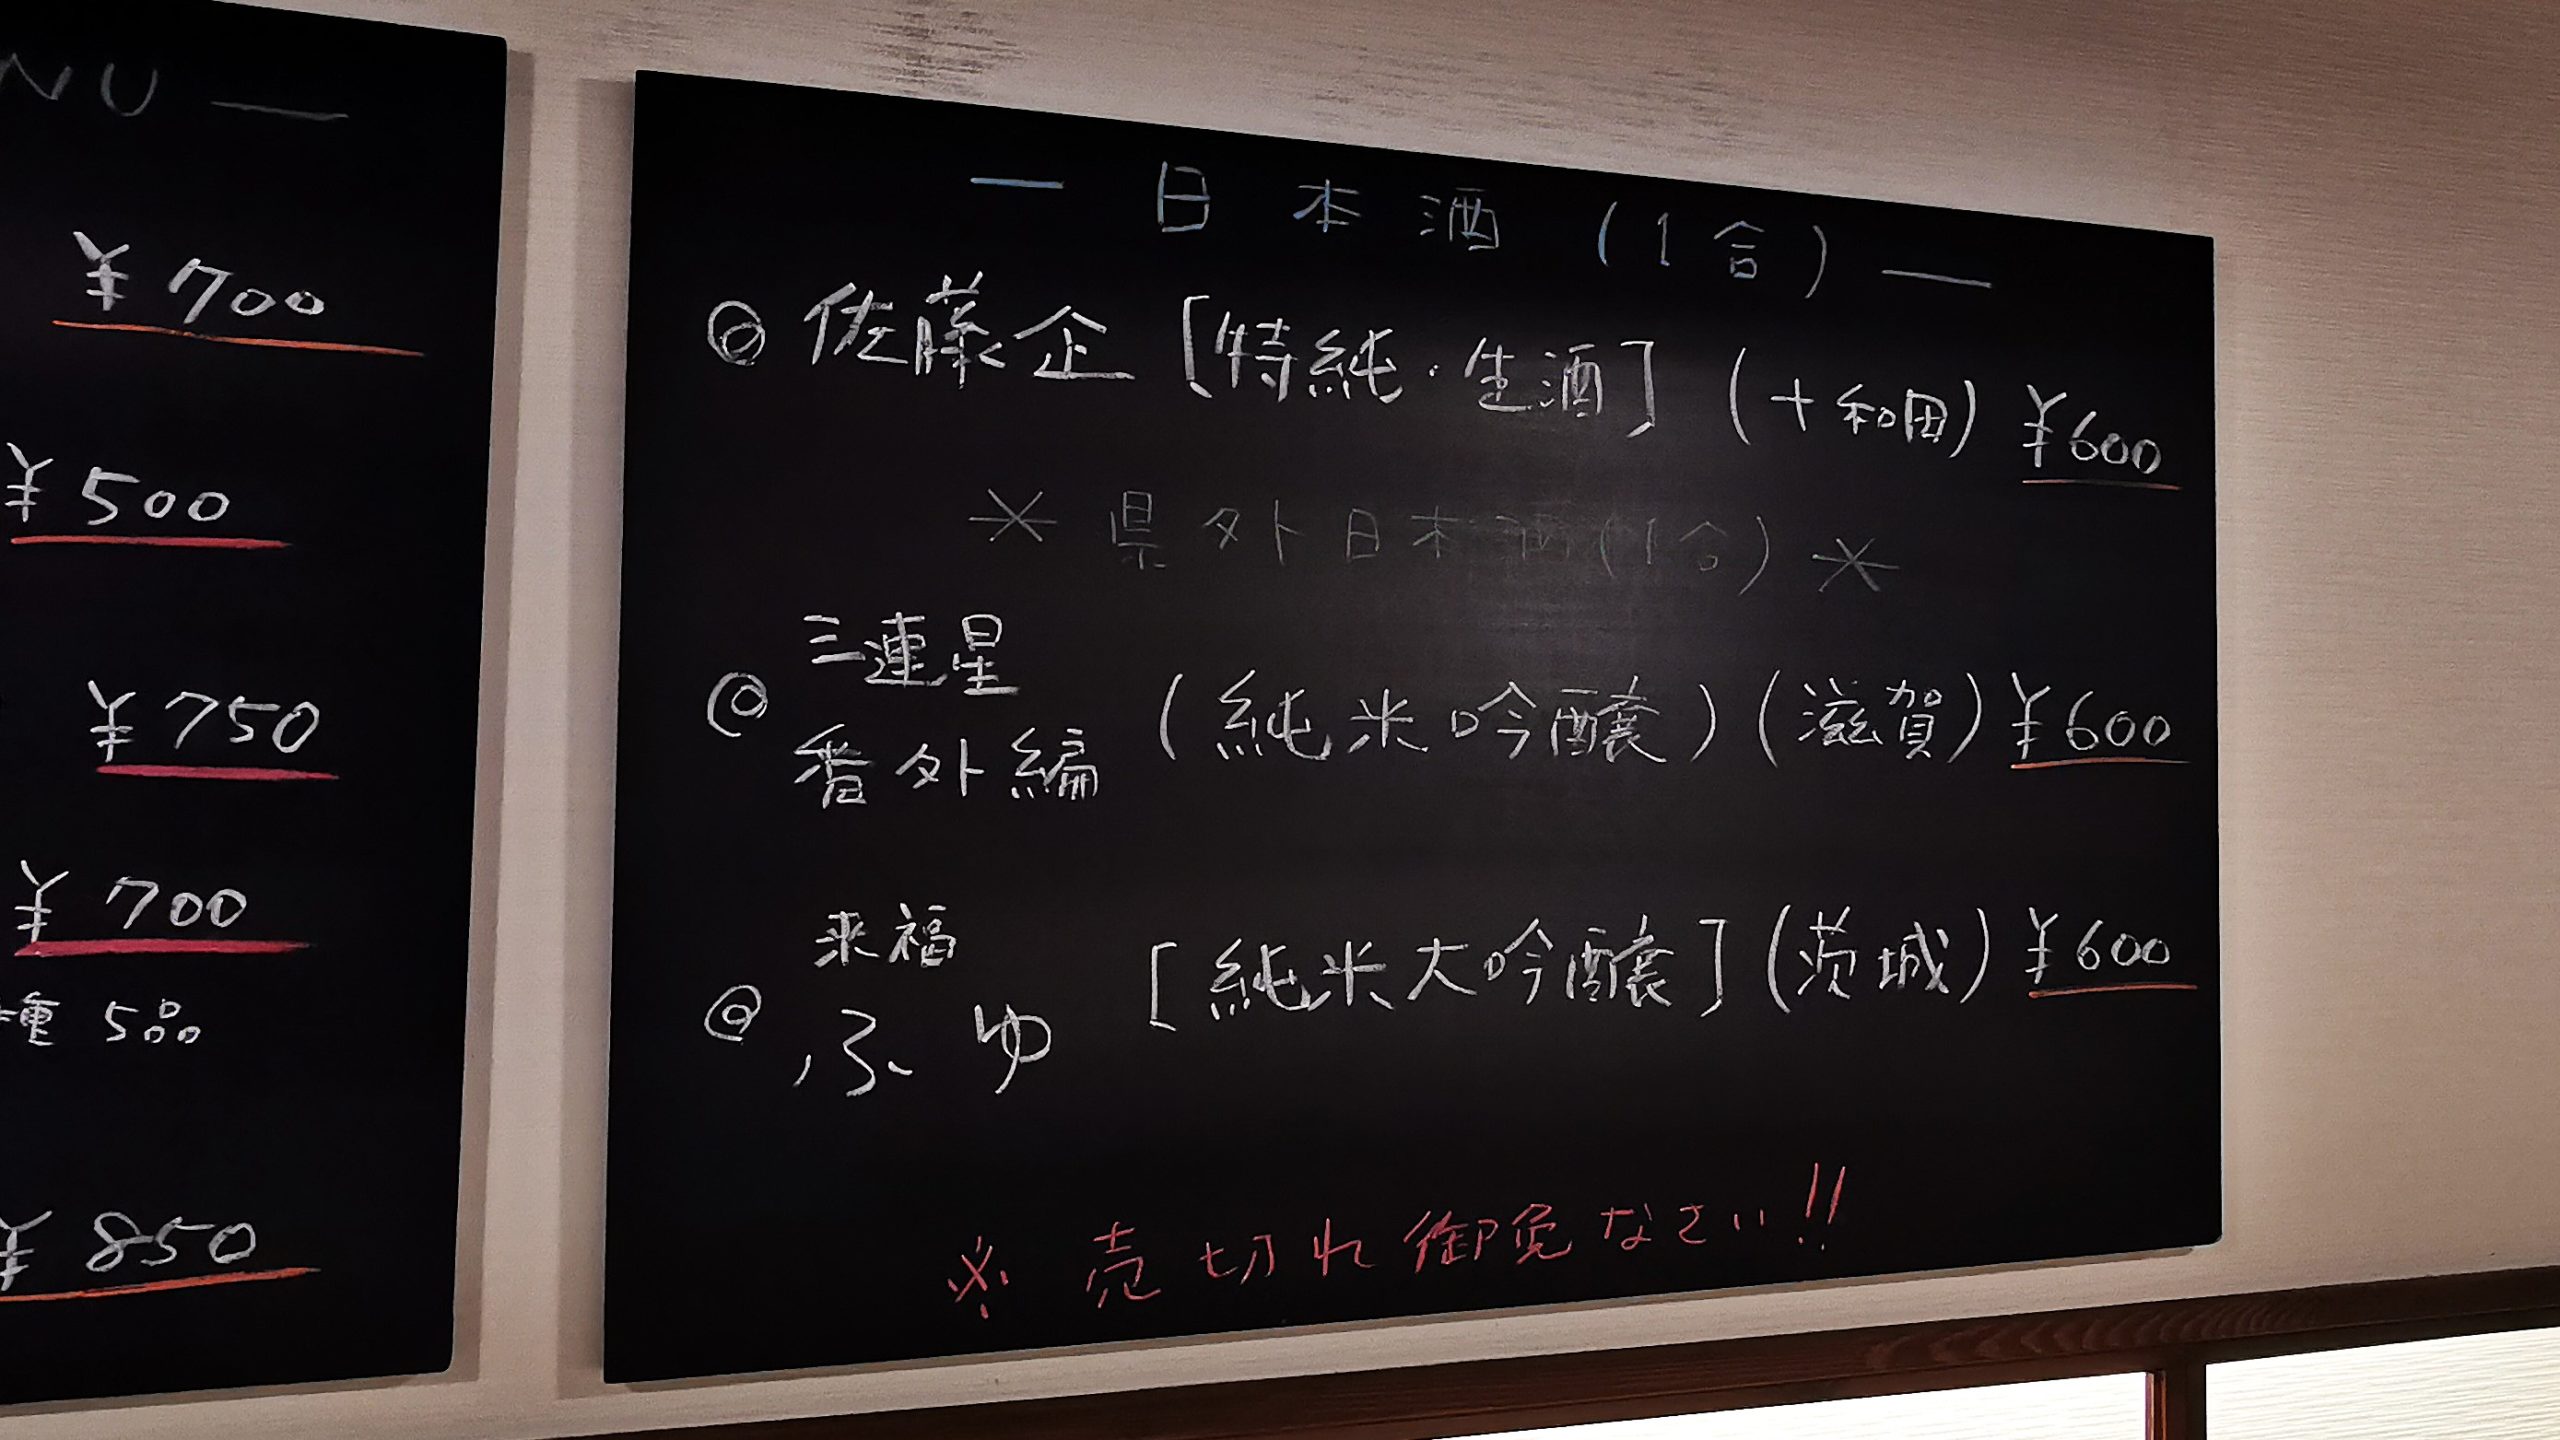 NU —
¥700
¥500
¥750
¥700
種 5品
¥850
— 日本酒 (1合) —
◎ 佐藤企 [特純・生酒] (十和田) ¥600
＊ 県外日本酒 (1合) ＊
◎ 三連星
番外編 (純米吟醸) (滋賀) ¥600
◎ 来福
ふゆ [純米大吟醸] (茨城) ¥600
※ 売切れ御免なさい!!